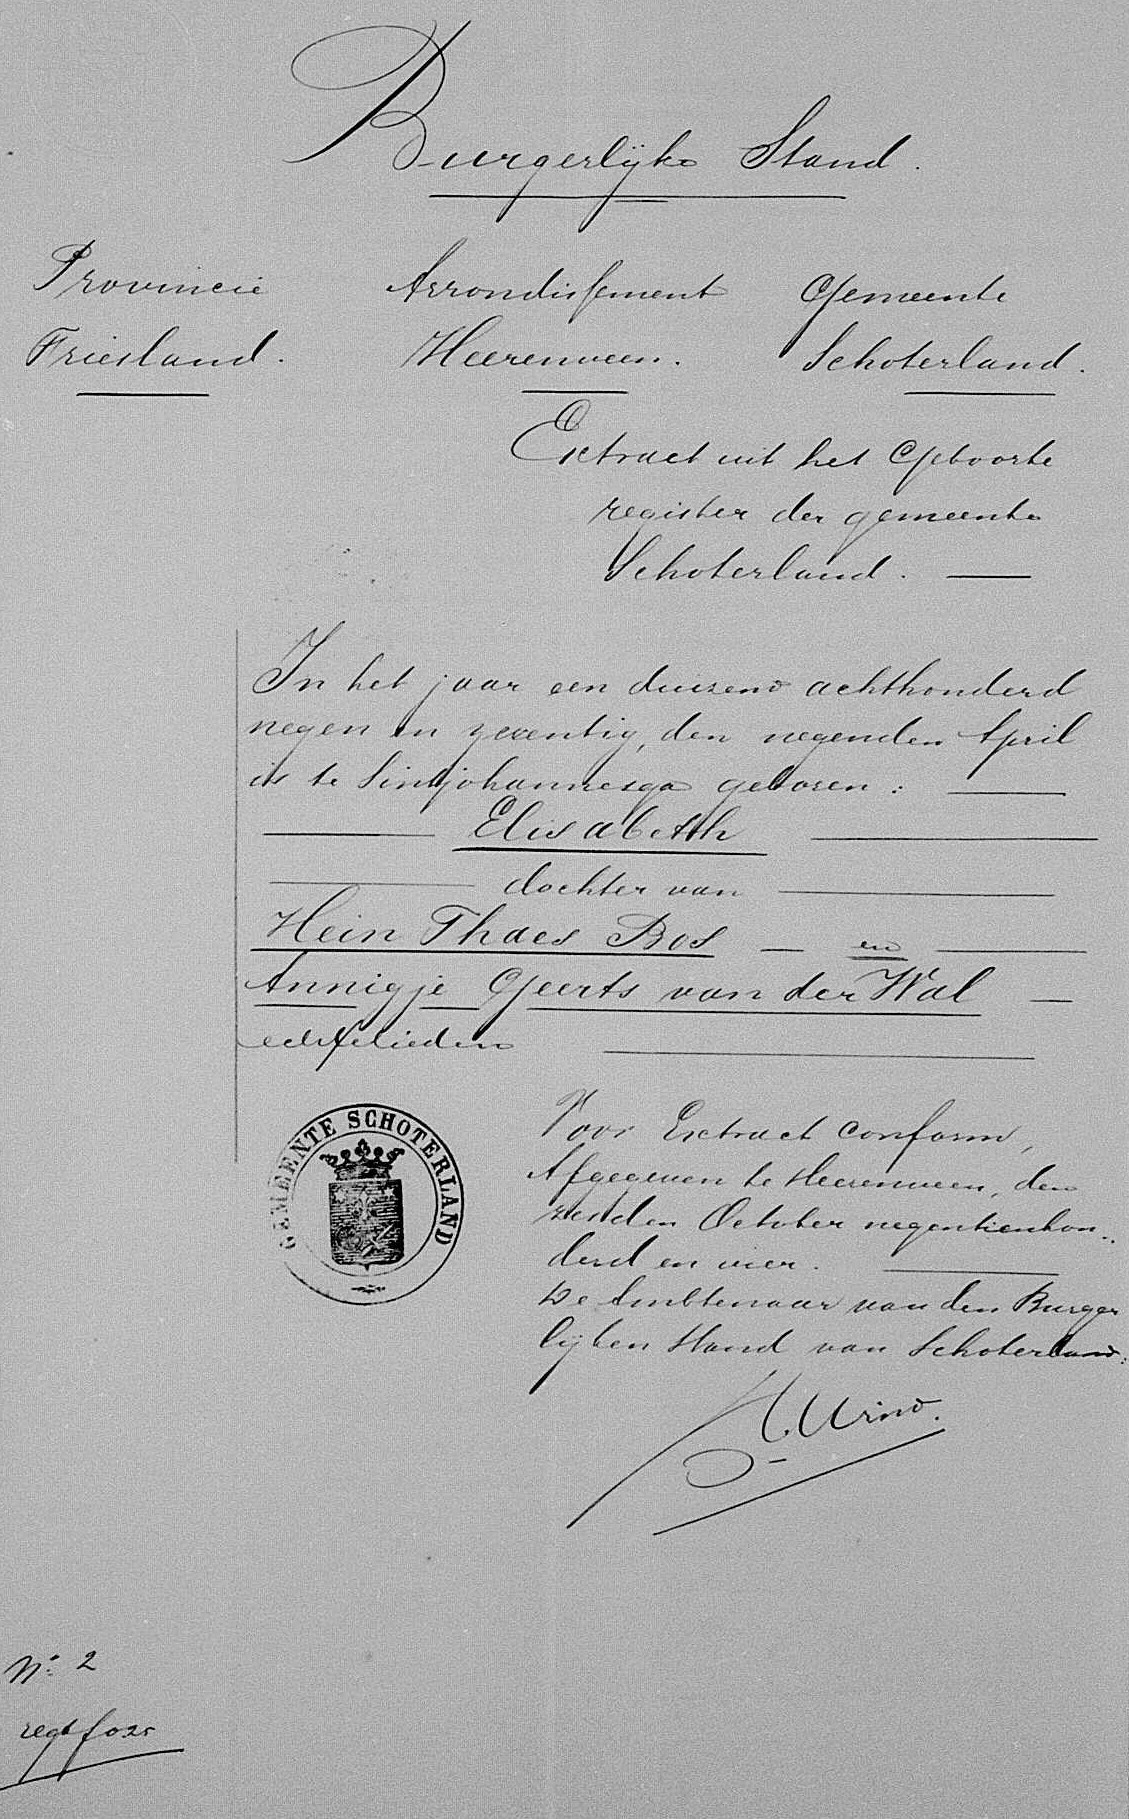 Burgerlijke Stand.
Provincie Arrondissement Gemeente
Friesland. Heerenveen. Schoterland.
Extract uit het Geboorte
register der gemeente
Schoterland.
In het jaar een duizend achthonderd
negen en zeventig, den negenden April
is te Sintjohannesga geboren:
Elisabeth
dochter van
Hein Thaes Bos en
Annigje Geerts van der Wal
echtelieden
GEMEENTE SCHOTERLAND
Voor Extract conform,
Afgegeven te Heerenveen, den
zesden October negentienhon-
derd en vier.
De Ambtenaar van den Burger
lijken Stand van Schoterland:
No. 2